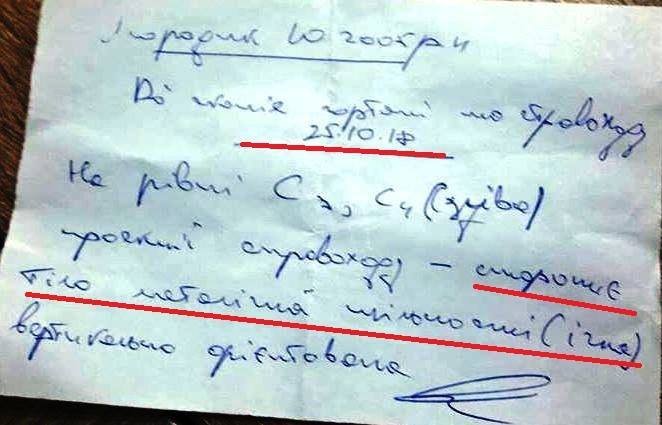 Городик Ю 2008р н
Rö скопія гортані та стравоходу
25.10.18
На рівні С₃, С₄ (зліва)
проекції стравоходу – стороннє
тіло металічної щільності (ігла)
вертикально орієнтована